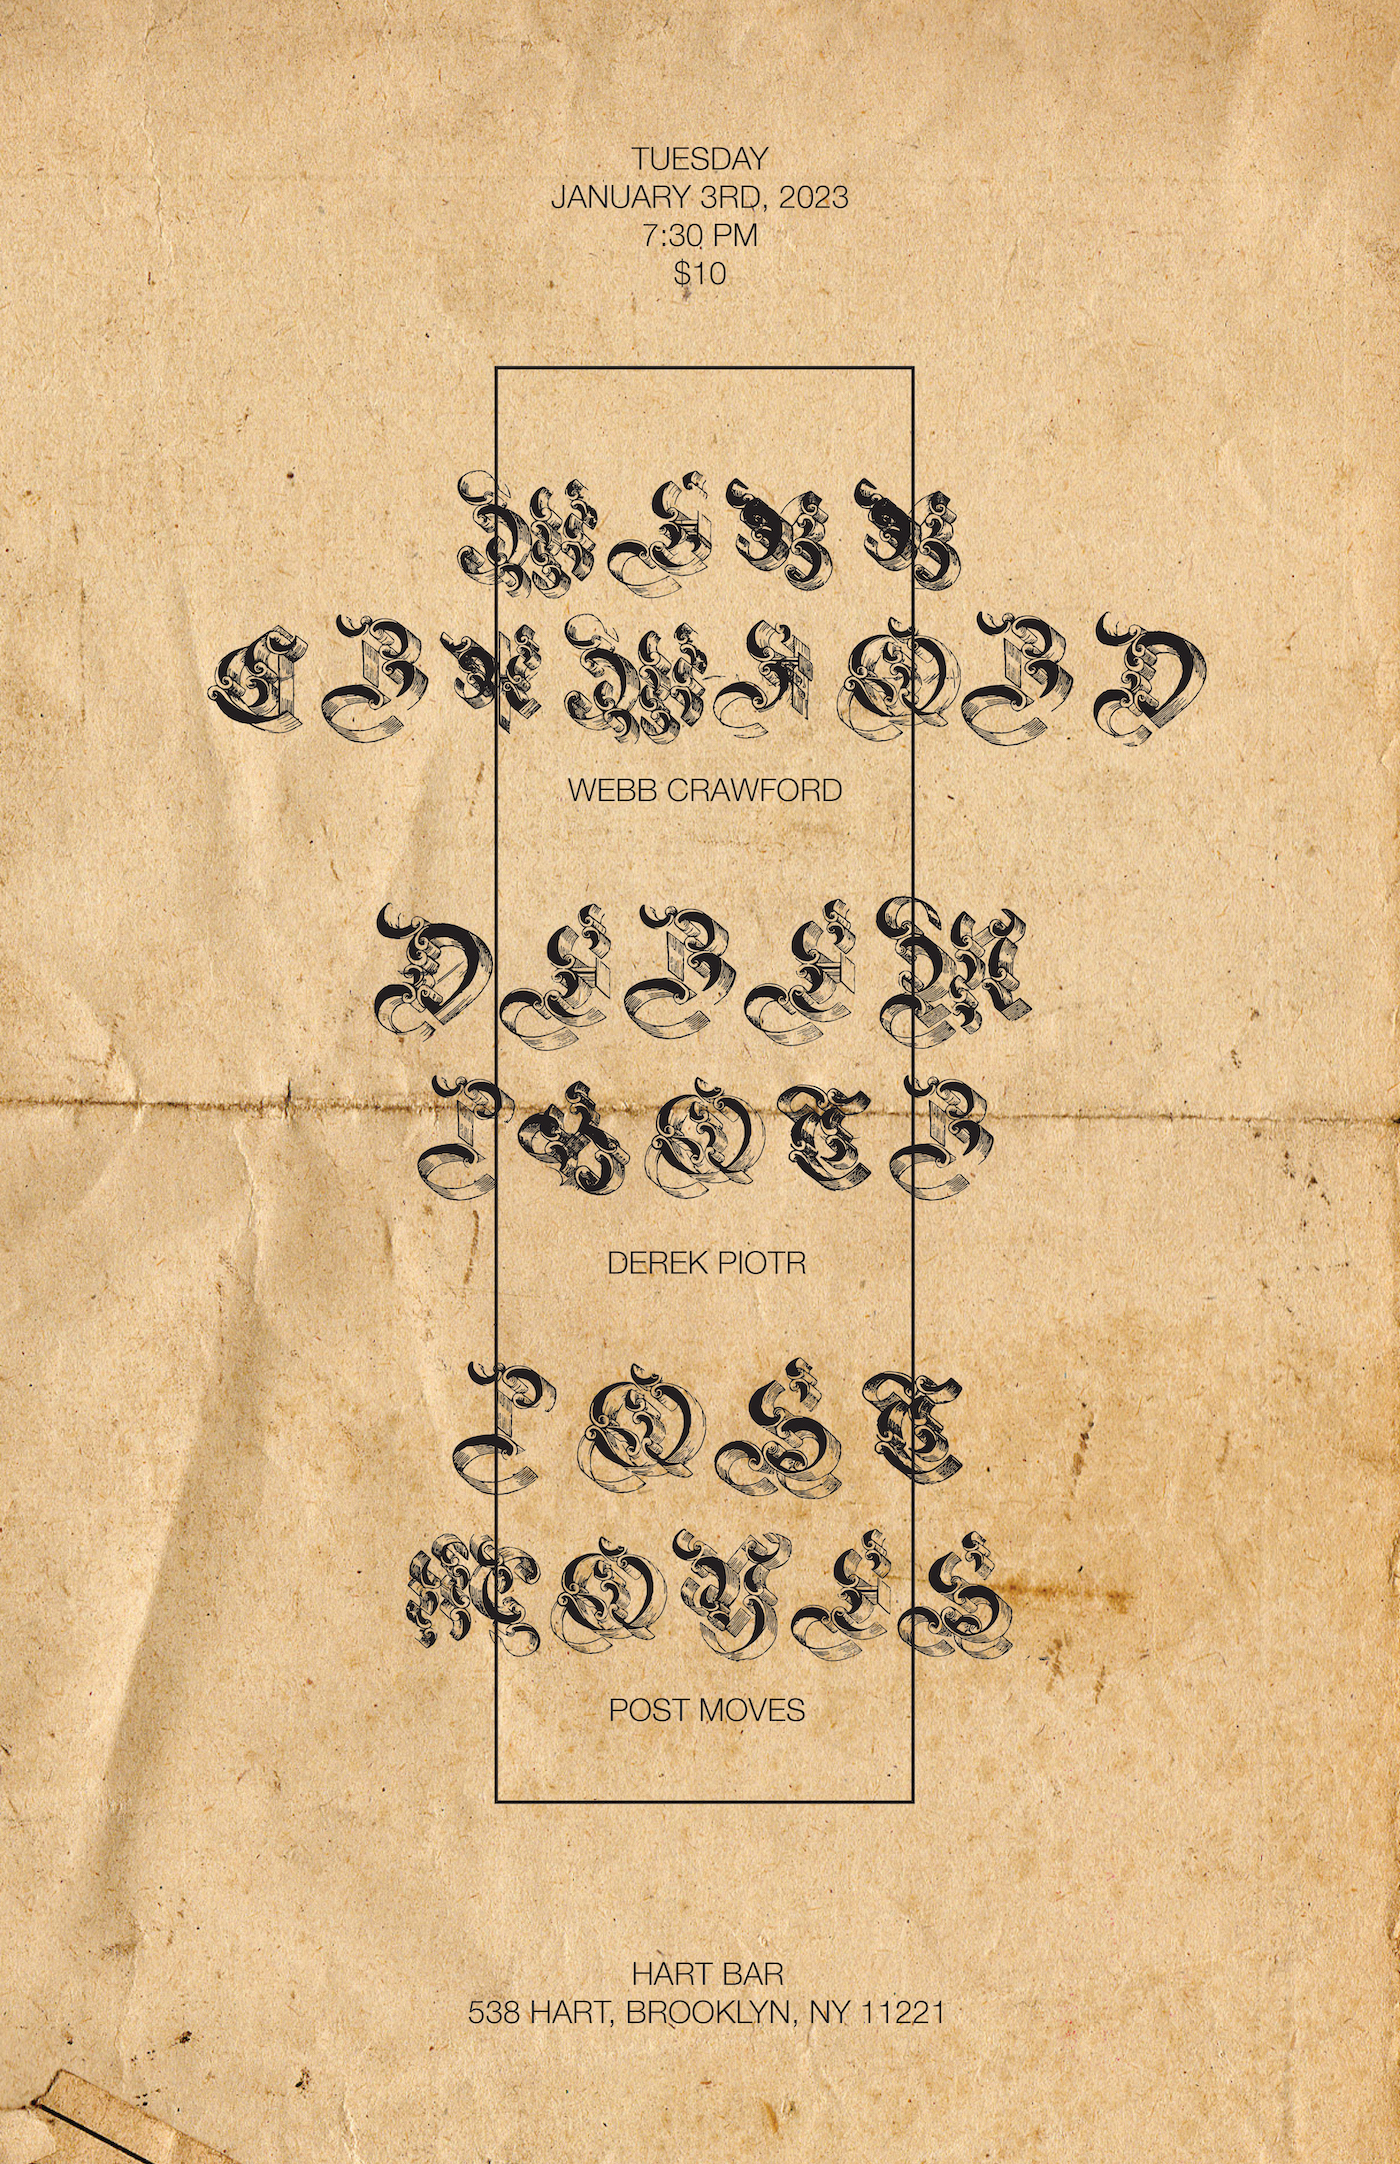 TUESDAY
JANUARY 3RD, 2023
7:30 PM
$10
WEBB
CRAWFORD
WEBB CRAWFORD
DEREK
PIOTR
DEREK PIOTR
POST
MOVES
POST MOVES
HART BAR
538 HART, BROOKLYN, NY 11221